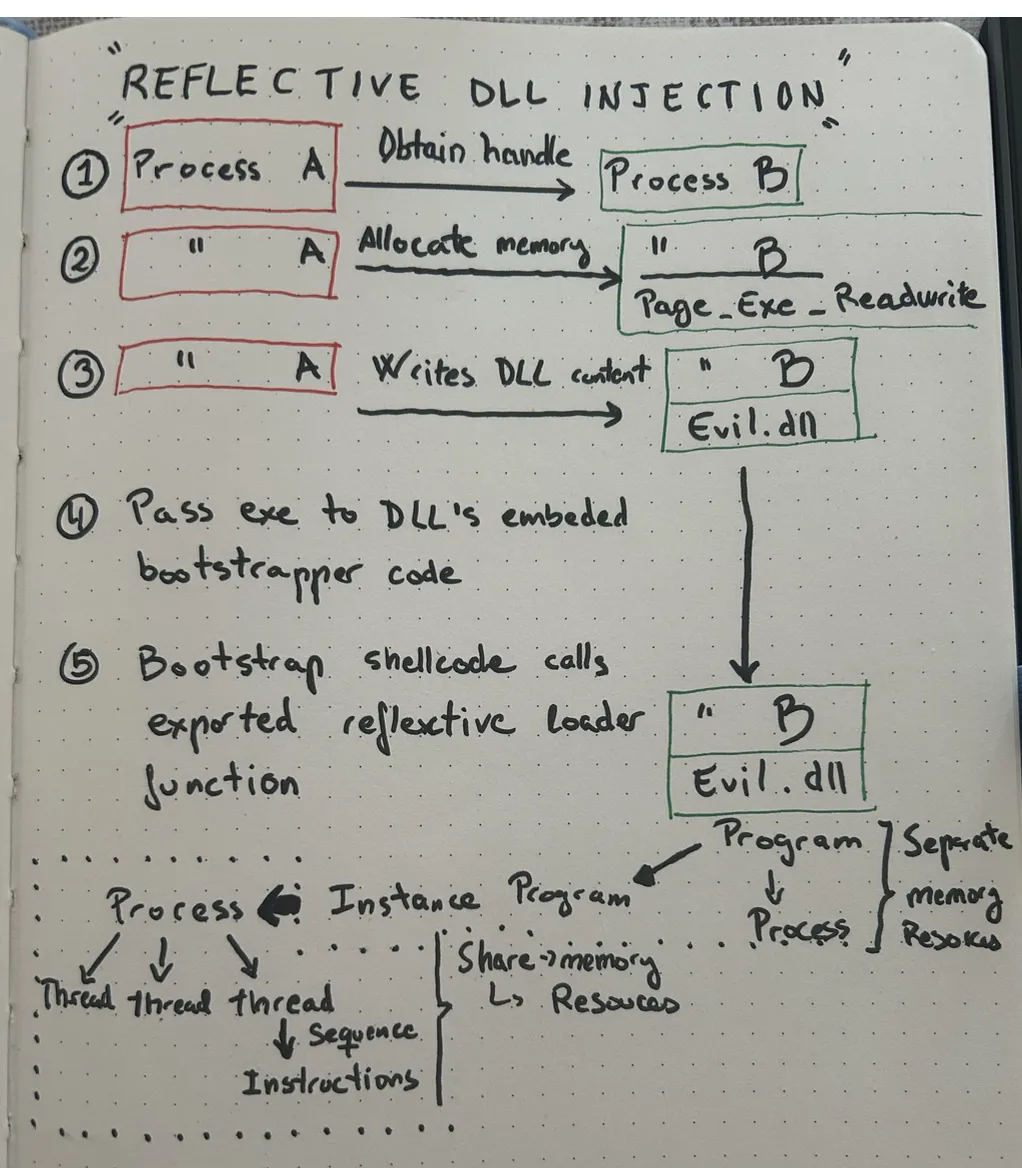 "REFLECTIVE DLL INJECTION"
① Process A Obtain handle Process B
② " A Allocate memory " B
Page_Exe_Readwrite
③ " A Writes DLL content " B
Evil.dll
④ Pass exe to DLL's embeded
bootstrapper code
⑤ Bootstrap shellcode calls
exported reflextive loader
function
" B
Evil.dll
Program
Process
Separate
memory
Resorces
Process Instance Program
Thread thread thread
Sequence
Instructions
Share → memory
↳ Resouces